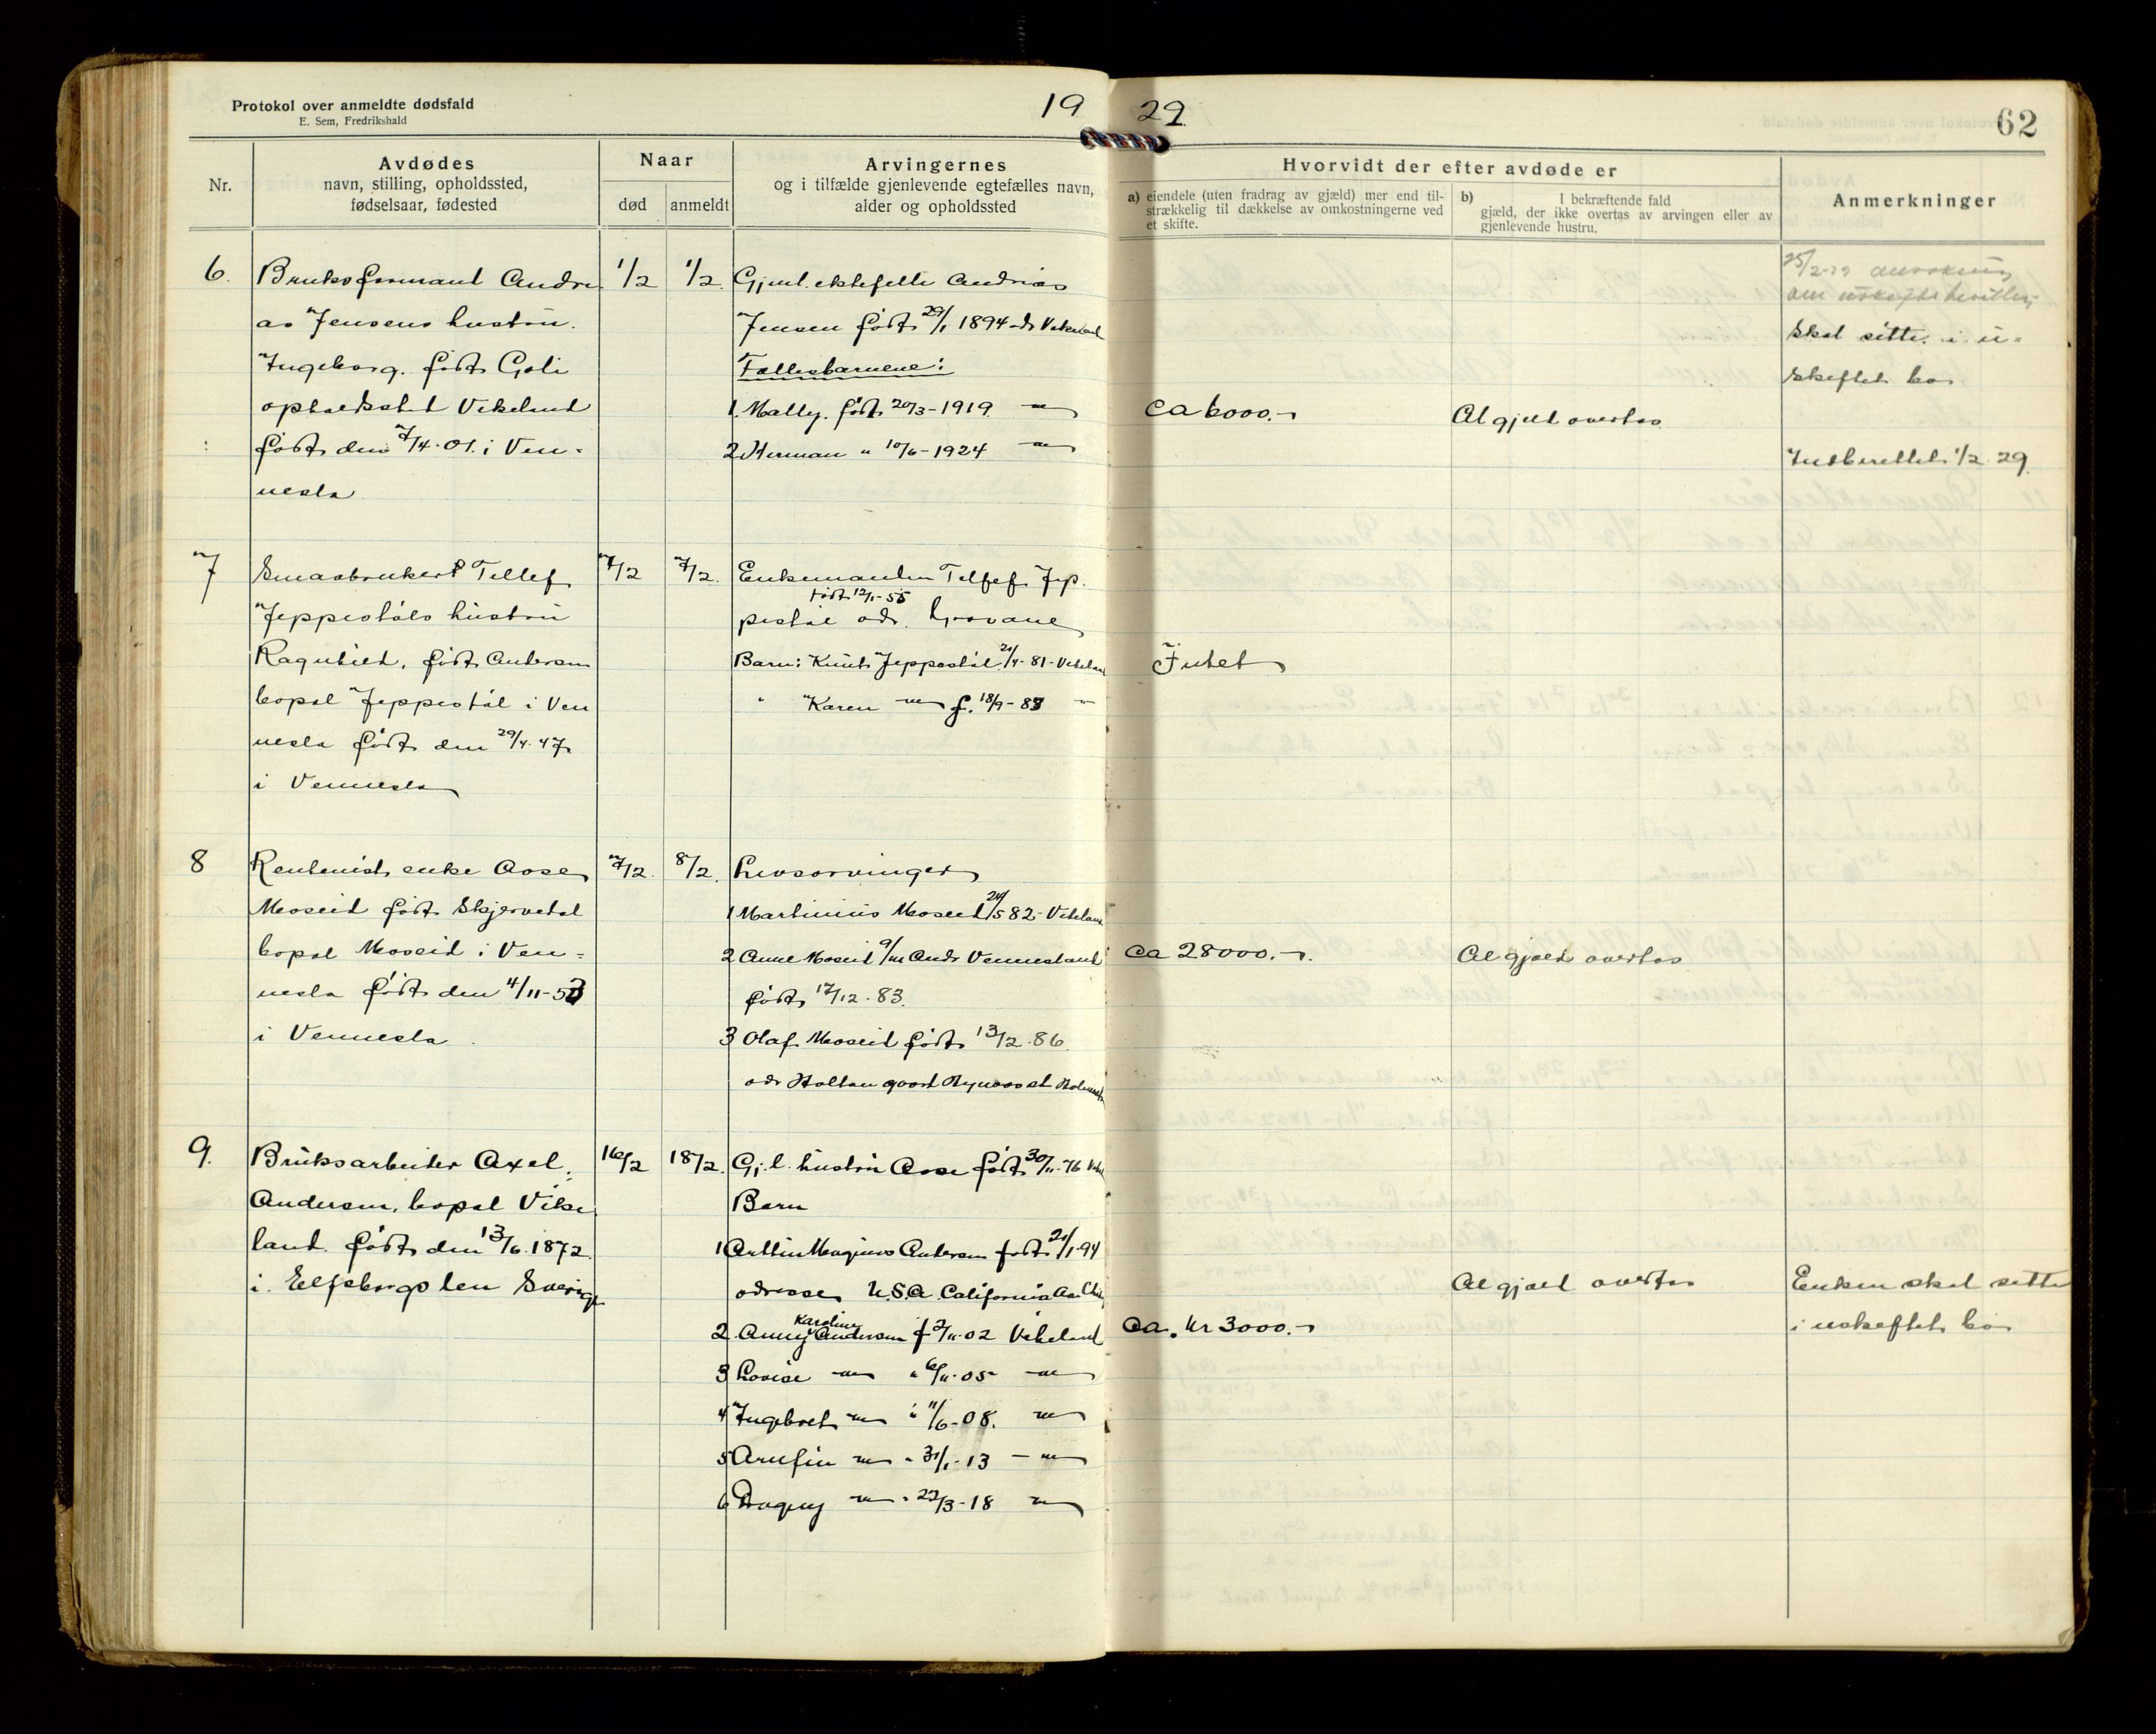 Protokol over anmeldte dødsfald
E. Sem, Fredrikshald
19 29.
62
Nr.
Avdødes
navn, stilling, opholdssted,
fødselsaar, fødested
Naar
død
anmeldt
Arvingernes
og i tilfælde gjenlevende egtefælles navn,
alder og opholdssted
Hvorvidt der efter avdøde er
a) eiendele (uten fradrag av gjæld) mer end til-
strækkelig til dækkelse av omkostningerne ved
et skifte.
b) I bekræftende fald
gjæld, der ikke overtas av arvingen eller av
gjenlevende hustru.
Anmerkninger
6.
Bruksformand Andre
as Jensens hustru.
Ingeborg. født Goli
opholdssted Vikeland
født den 7/4-01. i Ven-
nesla
1/2
1/2.
Gjenl. ektefelle Andreas
Jensen født 29/1 1894 - ds Vikeland
Fællesbarnene:
1. Mally. født 20/3-1919 -"-
2 Herman " 10/6-1924 -"-
ca 6000.-
Al gjeld overtas
25/2-29
Skal sitte i u-
skiftet bo
Indberettet 1/2 29.
7
Smaabruker Tellef
Jeppestøls hustru
Ragnhild, født Andersen
bopæl Jeppestøl i Ven
nesla født den 29/4-47
i Vennesla
7/2
7/2.
Enkemanden Tellef Jep-
født 12/1-55
pestøl adr. Grovane
Barn: Knut Jeppestøl 21/4-81-Vikeland
" Karen -"- f. 18/9-83 -"-
Intet
8
Rentenist enke Aase
Moseid født Skjervedal
bopæl Moseid i Ven-
nesla født den 4/11-53
i Vennesla
7/2.
8/2.
Livsarvinger
1 Martinius Moseid 24/5 82-Vikeland
2 Anne Moseid g/m Andr Vennesland
født 17/12-83.
3 Olaf Moseid født 13/2-86.
adr Holtan gaard
ca 28000.-
Al gjæld overtas
9.
Bruksarbeider Axel
Andersen, bopæl Vike
land. født den 13/6.1872
i. Elfsborgs len Sverige
16/2
18/2.
Gj.l. hustru Aase født 30/11-76
Barn
1 Magnus Andersen født 21/1-94
adresse U.S.A. California
Karoline
2. Anny Andersen f 2/11-02 Vikeland
3 Lovise -"- " 6/11-05 -"-
4 Ingebret -"- " 11/6-08. -"-
5 Arnfin -"- " 31/1-13 -"-
6 Dagny -"- " 22/3-18 -"-
ca. kr 3000.-
Al gjæld overtas
Enken skal sitte
i uskiftet bo